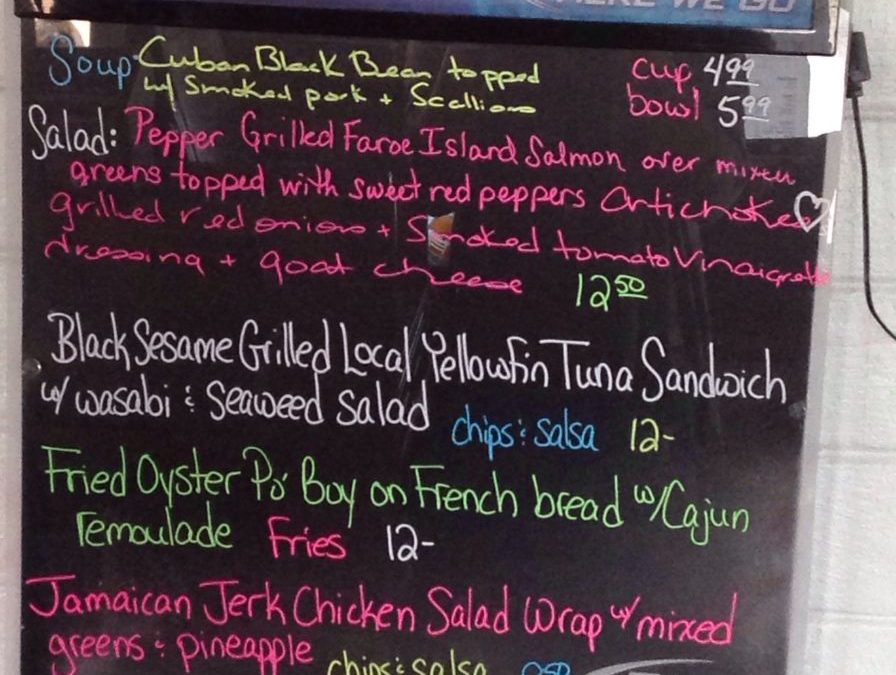 HERE WE GO
Soup Cuban Black Bean topped cup 4.99
w/ Smoked pork + Scallions bowl 5.99
Salad: Pepper Grilled Faroe Island Salmon over mixed
greens topped with sweet red peppers artichokes
grilled red onions + Smoked tomato Vinaigrette
dressing + goat cheese 12.50
Black Sesame Grilled Local Yellowfin Tuna Sandwich
w/ wasabi & Seaweed Salad
chips & salsa 12-
Fried Oyster Po' Boy on French bread w/ Cajun
remoulade Fries 12-
Jamaican Jerk Chicken Salad Wrap w/ mixed
greens & pineapple
chips & salsa